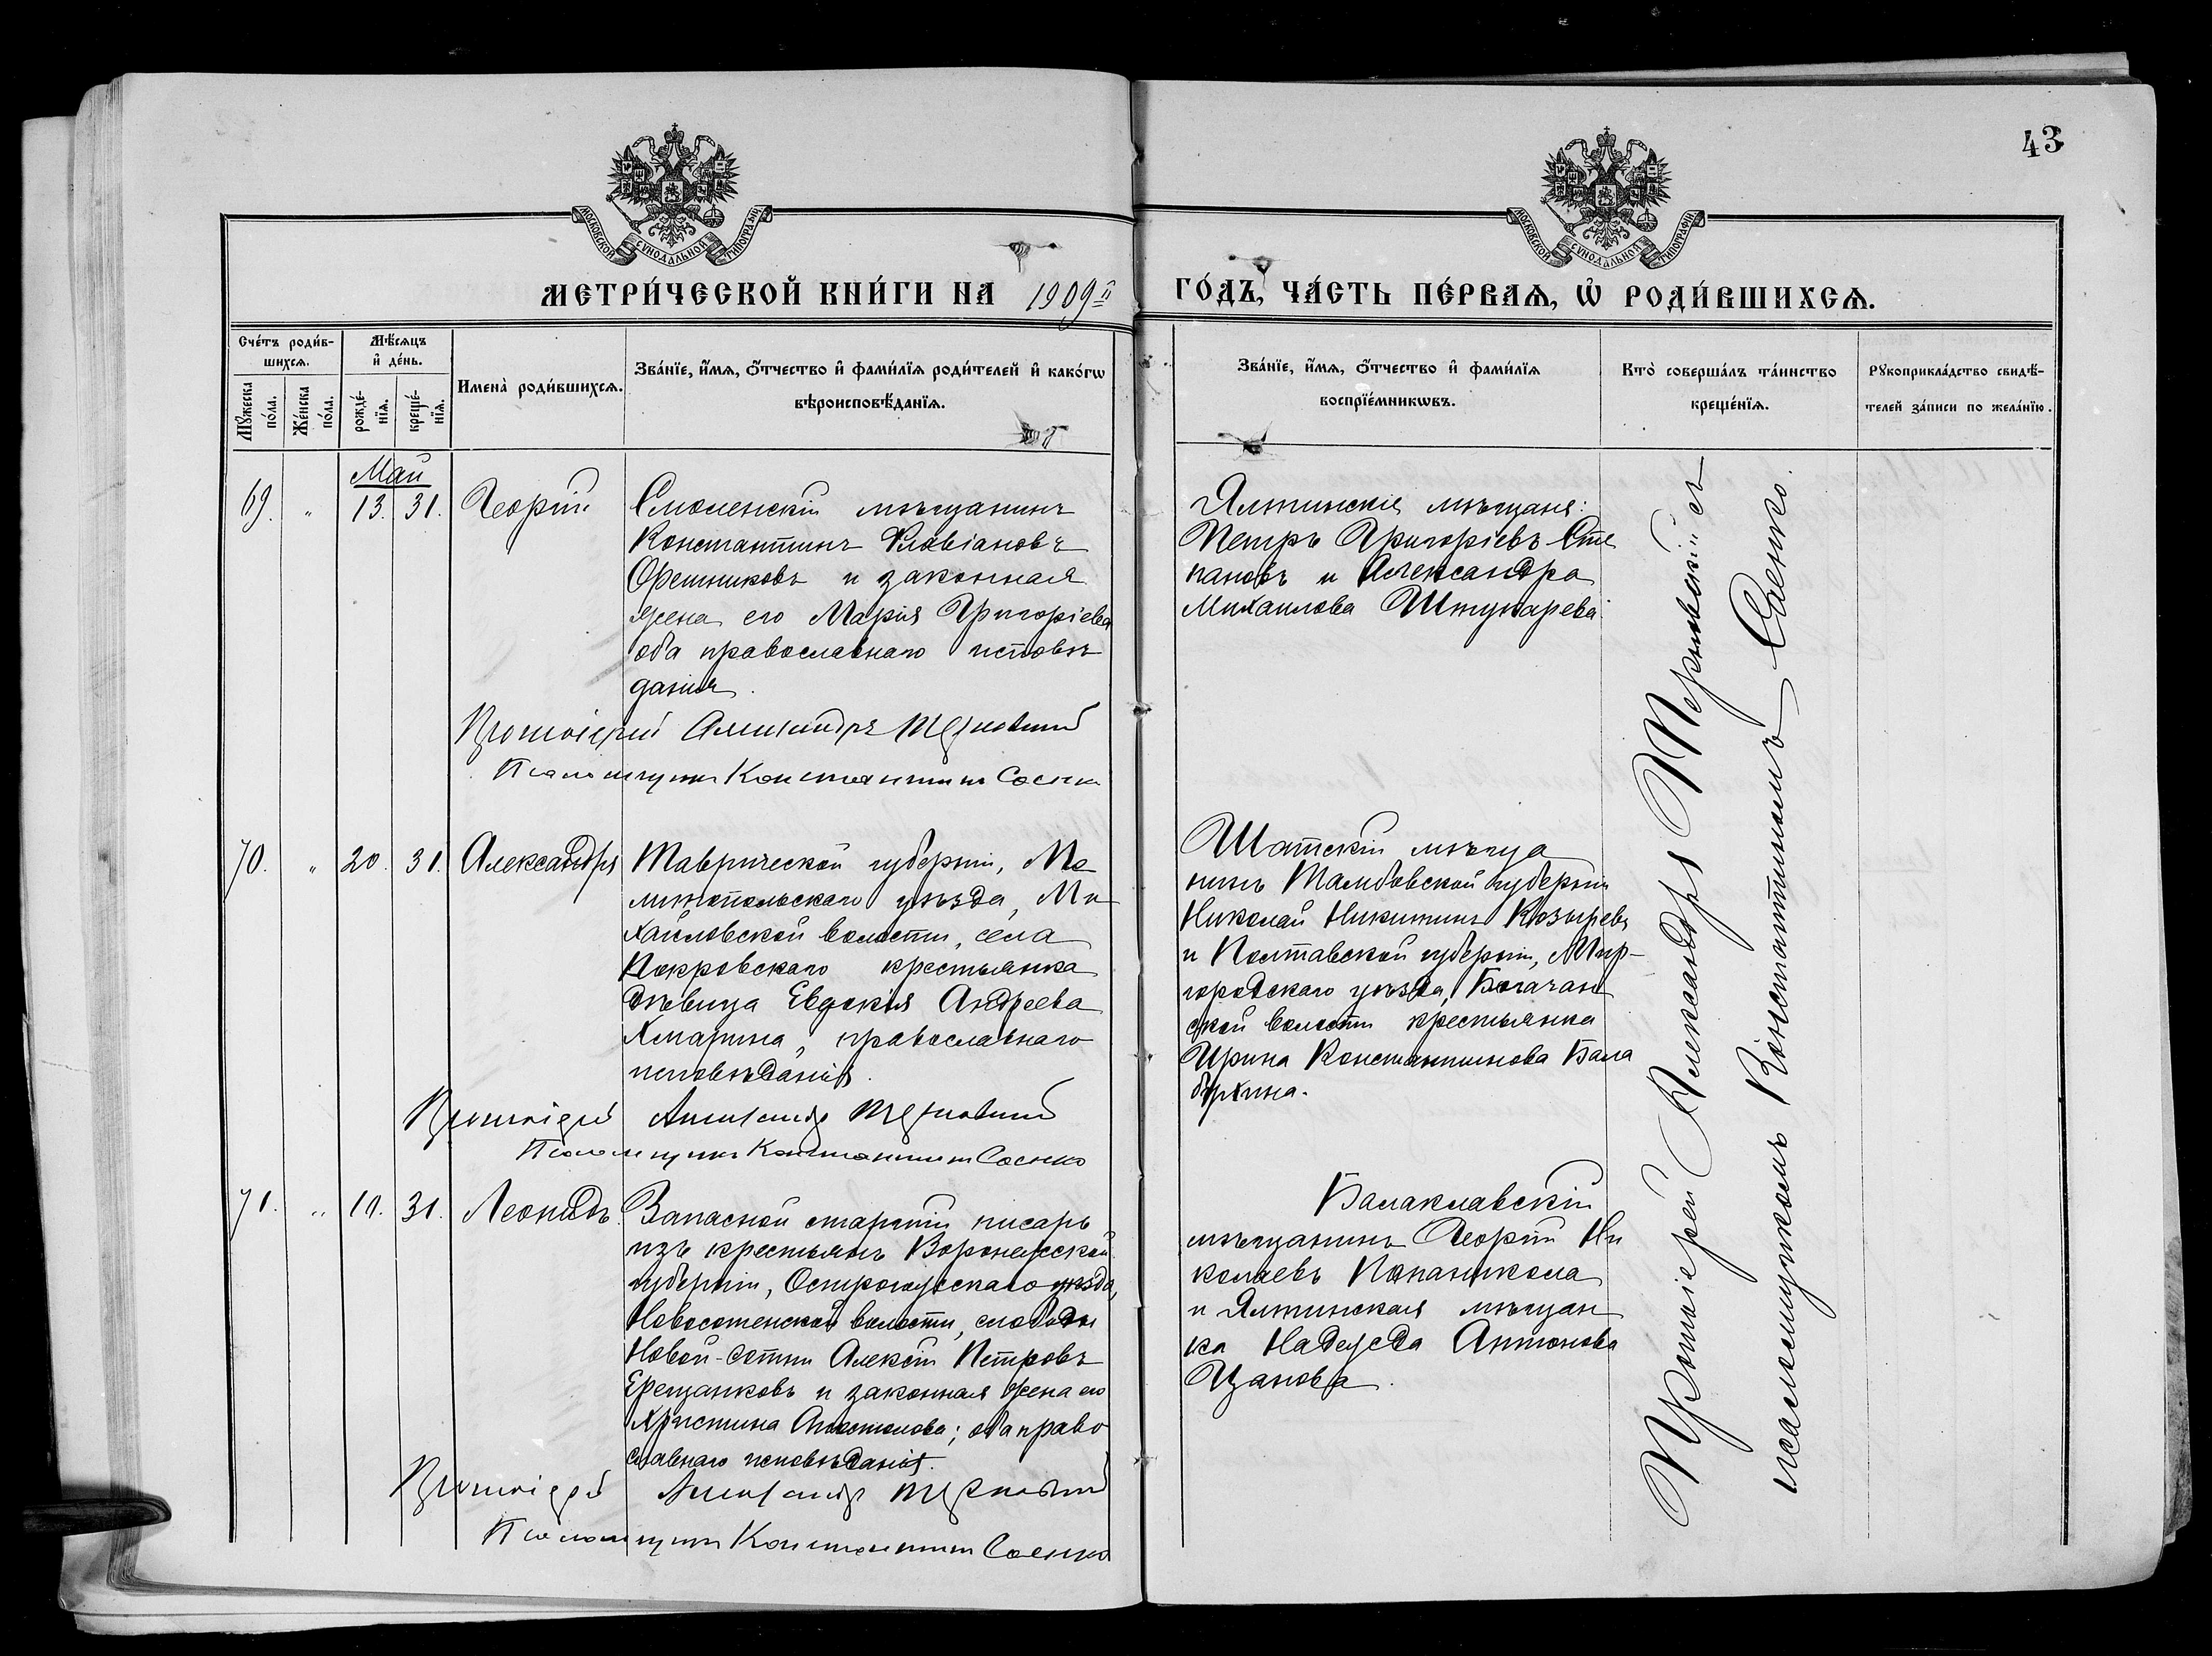 43
МОСКОВСКОЙ СѴНОДАЛЬНОЙ ТИПОГРАФІИ
МОСКОВСКОЙ СѴНОДАЛЬНОЙ ТИПОГРАФІИ
МЕТРИ́ЧЕСКОЙ КНИ́ГИ НА 1909й ГО́ДЪ, ЧА́СТЬ ПЕ́РВАѦ, Ѡ҆ РОДИ́ВШИХСѦ.
Сче́тъ роди́вшихсѧ.
Мꙋ́жеска по́ла.
Же́нска по́ла.
Мѣ́сѧцъ и҆ де́нь.
рожде́нїѧ.
креще́нїѧ.
Имена̀ роди́вшихсѧ.
Зва́нїе, и҆́мѧ, ѻ҆́тчество и҆ фами́лїѧ роди́телей и҆ како́гѡ
вѣроисповѣ́данїѧ.
Зва́нїе, и҆́мѧ, ѻ҆́тчество и҆ фами́лїѧ
воспрїе́мникѡвъ.
Кто̀ соверша́лъ та́инство
креще́нїѧ.
Рꙋкоприкла́дство свидѣ́-
телей за́писи по жела́нїю.
Май
69. " 13. 31. Георгій
Смоленскій мѣщанинъ
Константинъ Флавіановъ
Орешниковъ и законная
жена его Марія Григоріева
оба православнаго исповѣ
данія.
Протоіерей Александръ Терновскій
Псаломщикъ Константинъ Саенко
Ялтинскіе мѣщане:
Петръ Григоріевъ Сте
пановъ и Александра
Михаилова Штукарева.
70. " 20. 31. Александръ
Таврической губерніи, Ме
литопольскаго уѣзда, Ми
хайловской волости, села
Покровскаго крестьянка
дѣвица Евдокія Андреева
Хмарина, православнаго
исповѣданія.
Протоіерей Александръ Терновскій
Псаломщикъ Константинъ Саенко
Шатскій мѣща
нинъ Тамбовской губерніи
Николай Никитинъ Козыревъ
и Полтавской губерніи, Мир-
городскаго уѣзда, Богачан
ской волости крестьянка
Ирина Константинова Бала
бухина.
71. " 10. 31. Леонидъ.
Запасной старшій писарь
изъ крестьянъ Воронежской
губерніи, Острогожскаго уѣзда,
Новосотенской волости, слободы
Новой-Сотни Алексѣй Петровъ
Ерещенковъ и законная жена его
Христина Апостолова; оба право
славнаго исповѣданія.
Протоіерей Александръ Терновскій
Псаломщикъ Константинъ Саенко
Балаклавскій
мѣщанинъ Георгій Ни
колаевъ Папаникола
и Ялтинская мѣщан
ка Надежда Антонова
Цанова.
Протоіерей Александръ Терновскій съ
псаломщикомъ Константиномъ Саенко.